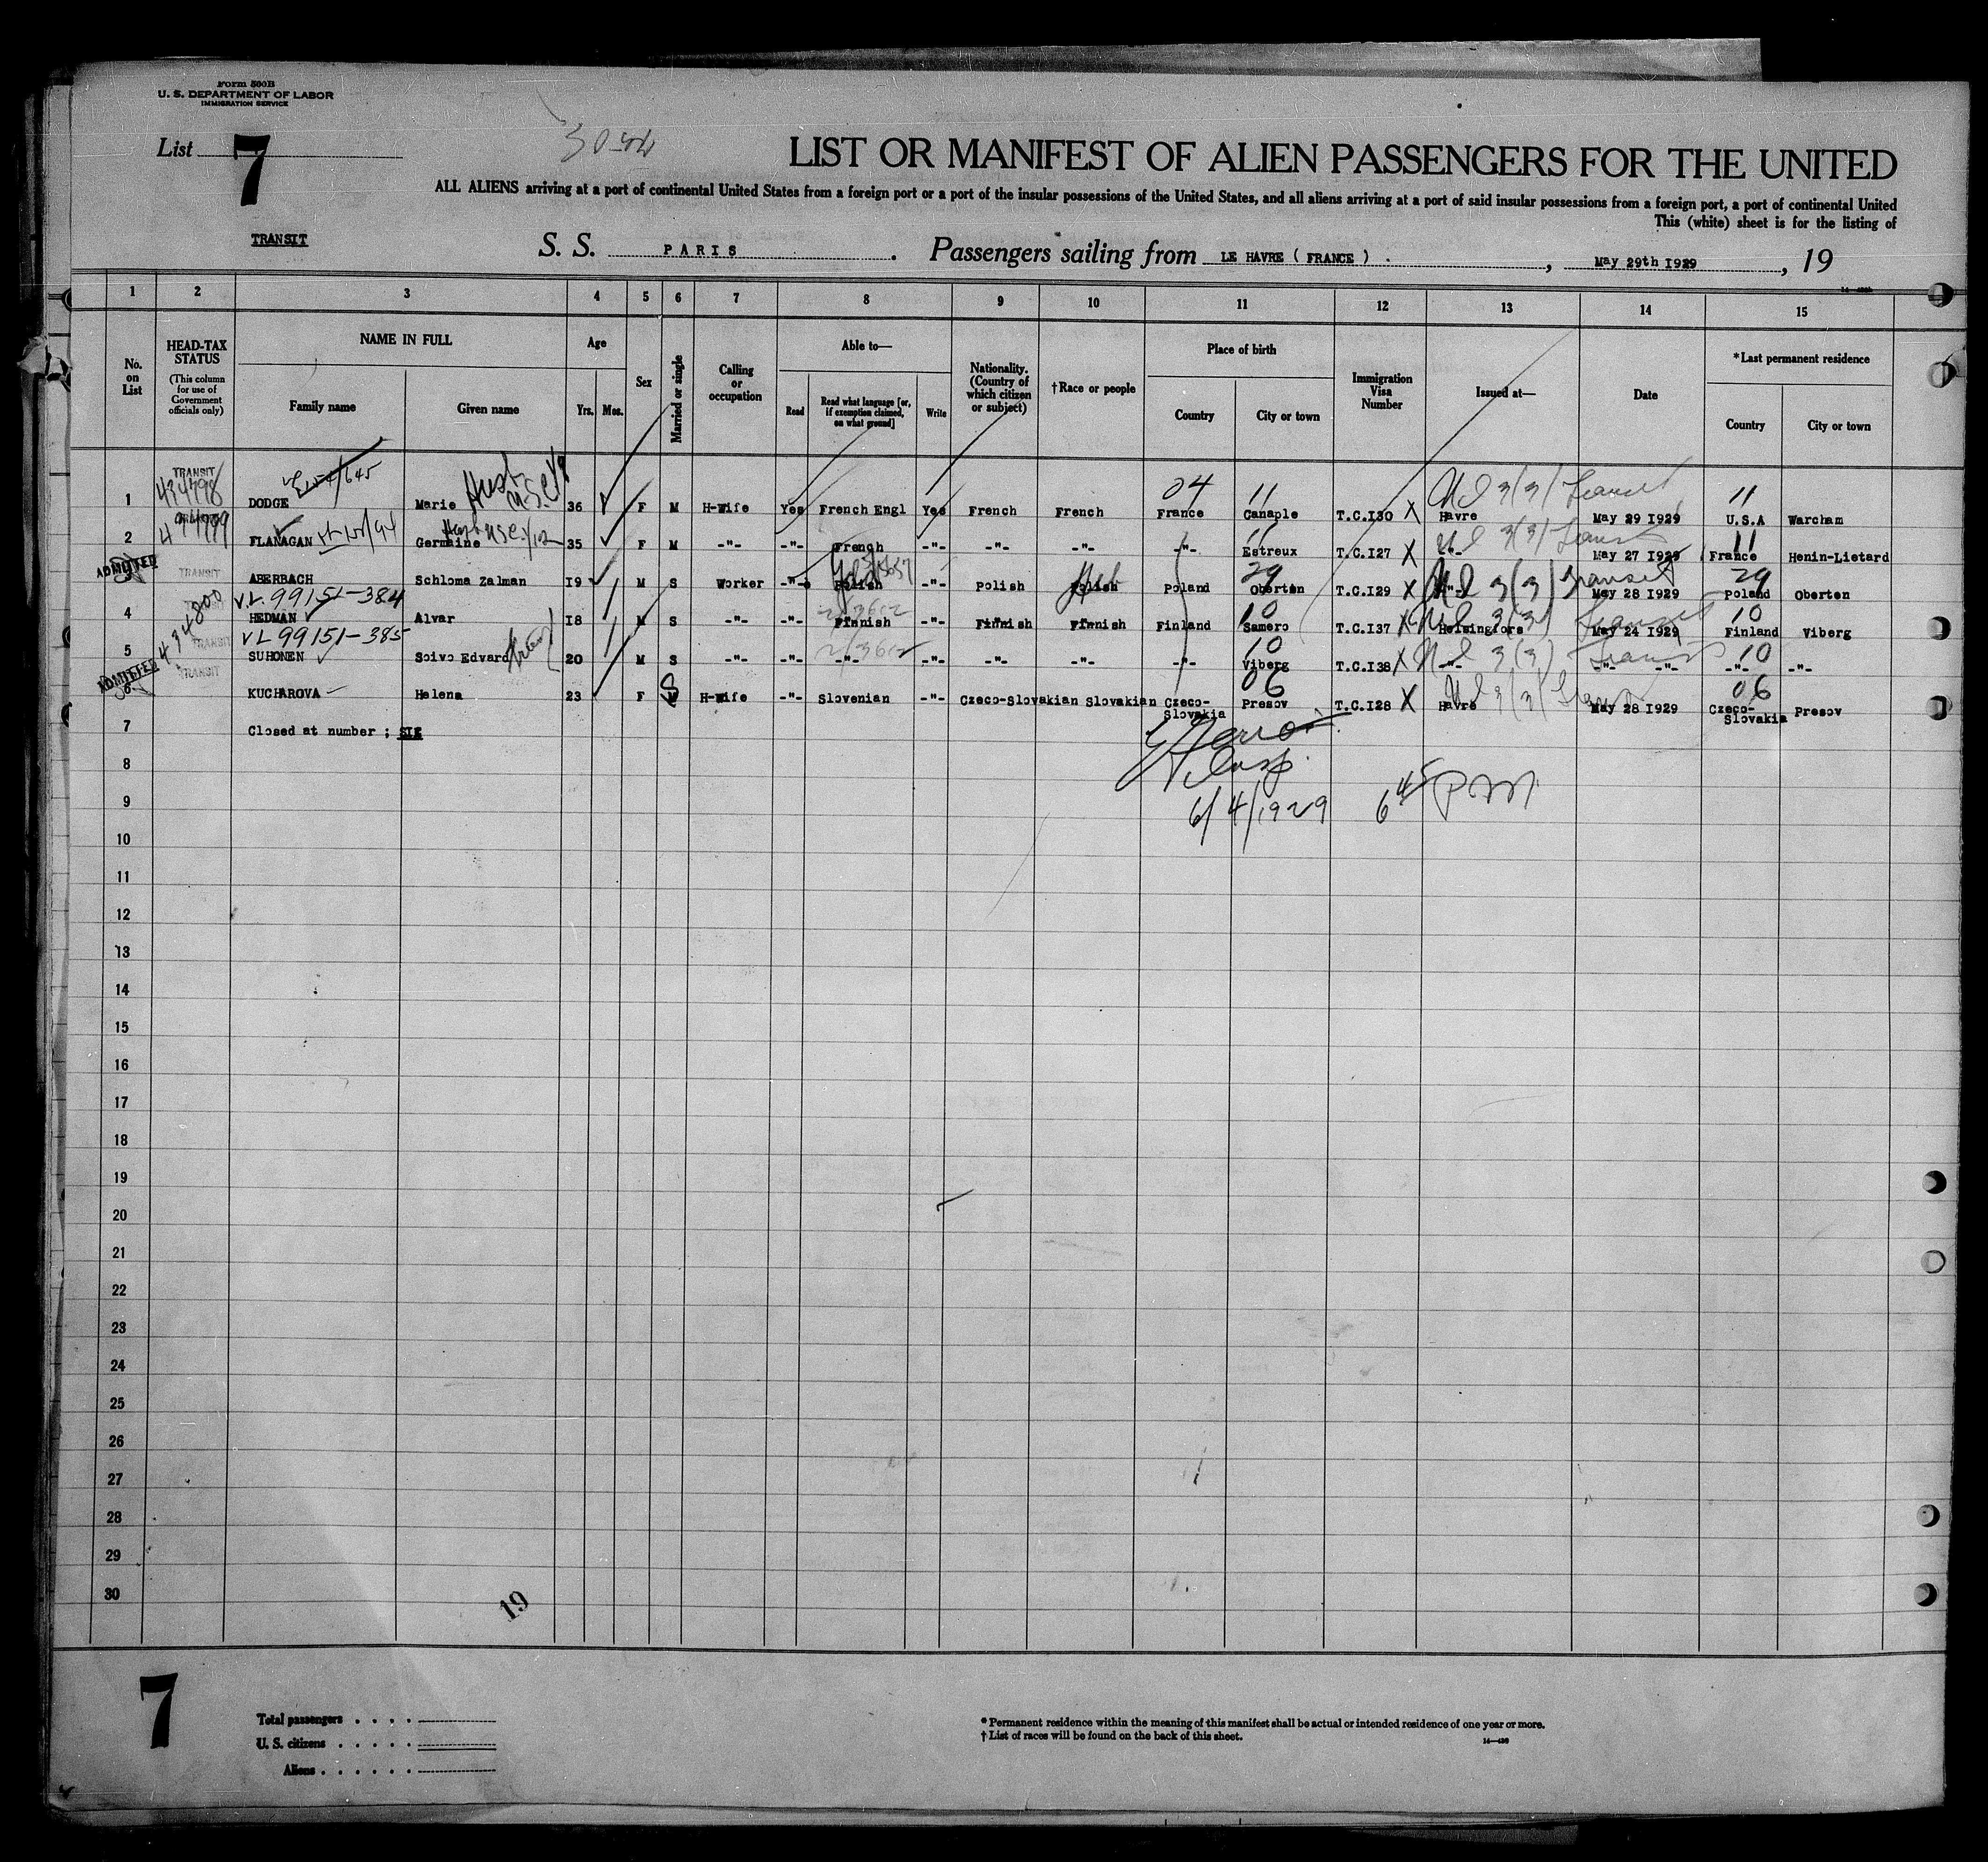 Form 500B
U. S. DEPARTMENT OF LABOR
IMMIGRATION SERVICE
List 7
LIST OR MANIFEST OF ALIEN PASSENGERS FOR THE UNITED
ALL ALIENS arriving at a port of continental United States from a foreign port or a port of the insular possessions of the United States, and all aliens arriving at a port of said insular possessions from a foreign port, a port of continental United
This (white) sheet is for the listing of
TRANSIT S. S. PARIS. Passengers sailing from LE HAVRE ( FRANCE ) . , May 29th I929 , 19
1 2 3 4 5 6 7 8 9 10 11 12 13 14 15
No. on List HEAD-TAX STATUS (This column for use of Government officials only) NAME IN FULL Family name Given name Age Yrs. Mos. Sex Married or single Calling or occupation Able to— Read Read what language [or, if exemption claimed, on what ground] Write Nationality. (Country of which citizen or subject) †Race or people Place of birth Country City or town Immigration Visa Number Issued at— Date *Last permanent residence Country City or town
TRANSIT 04 11 11
1 434798 DODGE Marie 36 F M H-Wife Yes French Engl Yes French French France Canaple T.C.I30 X Havre May 29 I929 U.S.A Warcham
2 FLANAGAN Germaine 35 F M -"- -"- French -"- -"- -"- -"- Estreux T.C.I27 X -"- May 27 I929 France Henin-Lietard
ADMITTED TRANSIT 29 3(3) Transit 29
3 ABERBACH Schloma Zalman I9 M S Worker -"- Polish -"- Polish Polish Poland Oberten T.C.I29 X -"- May 28 I929 Poland Oberten
V.L. 99151-384 10 10
4 434800 HEDMAN Alvar I8 M S -"- -"- Finnish -"- Finnish Finnish Finland Samero T.C.I37 X Helsingfors May 24 I929 Finland Viberg
VL 99151-385 TRANSIT 10 3(3) 10
5 SUHONEN Soivo Edvard 20 M S -"- -"- -"- -"- -"- -"- -"- Viberg T.C.I38 X -"- -"- -"- -"- -"-
ADMITTED TRANSIT S 06 06
KUCHAROVA Helena 23 F M H-Wife -"- Slovenian -"- Czeco-Slovakian Slovakian Czeco-Slovakia Presov T.C.I28 X Havre May 28 I929 Czeco-Slovakia Presov
7 Closed at number ; SIX
8
9 6/4/1929 6 45 PM
10
11
12
13
14
15
16
17
18
19
20
21
22
23
24
25
26
27
28
29
30
19
7
Total passengers . . . .
U. S. citizens . . . . .
Aliens . . . . . .
* Permanent residence within the meaning of this manifest shall be actual or intended residence of one year or more.
† List of races will be found on the back of this sheet.